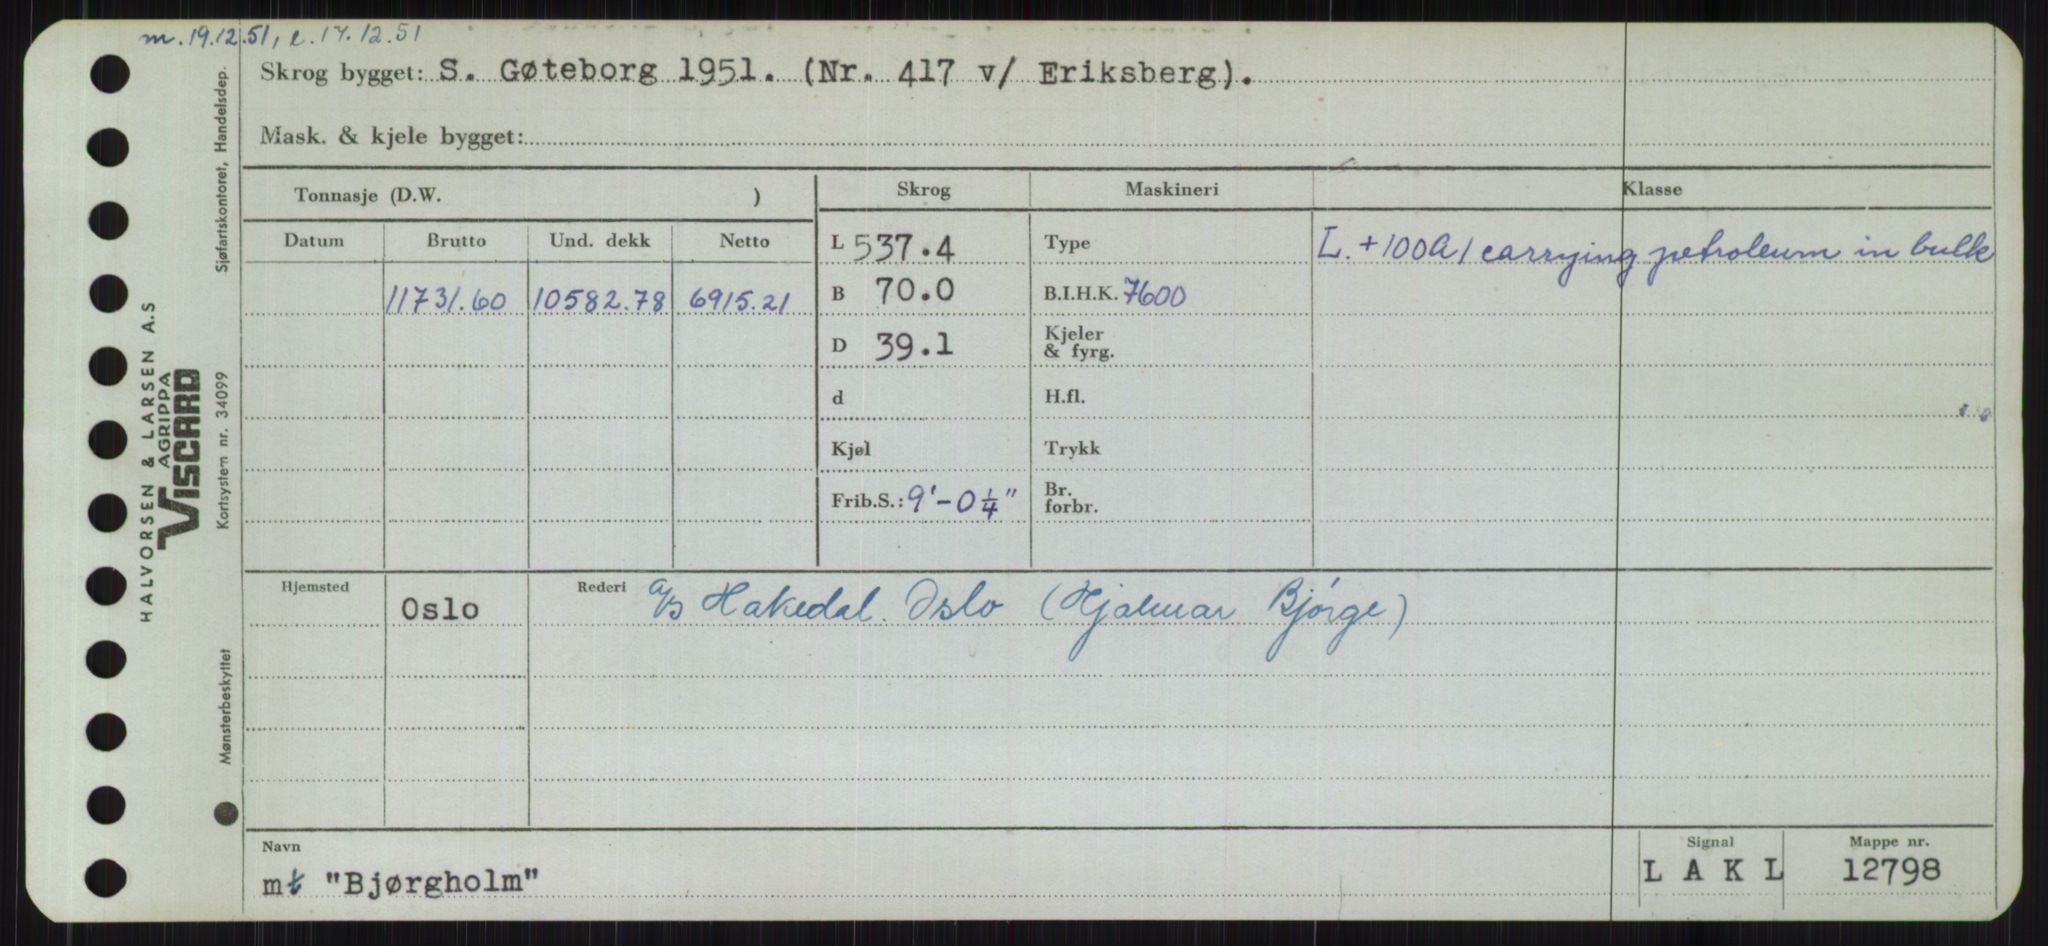 m. 19.12.51, e. 17.12.51
Skrog bygget: S. Gøteborg 1951. (Nr. 417 v/ Eriksberg).
Mask. & kjele bygget:
Tonnasje (D.W. )
Skrog
Maskineri
Klasse
Datum
Brutto
Und. dekk
Netto
L 537.4
Type
L. +100A1 carrying petroleum in bulk
11731.60
10582.78
6915.21
B 70.0
B.I.H.K. 7600
D 39.1
Kjeler
& fyrg.
d
H.fl.
Kjøl
Trykk
Frib.S.: 9'-0¼"
Br.
forbr.
Hjemsted
Oslo
Rederi
A/S Hakedal. Oslo (Hjalmar Bjørge)
Navn
mt "Bjørgholm"
Signal
L A K L
Mappe nr.
12798
HALVORSEN & LARSEN A.S
AGRIPPA
VISCARD
Sjøfartskontoret, Handelsdep.
Kortsystem nr. 34099
Mønsterbeskyttet